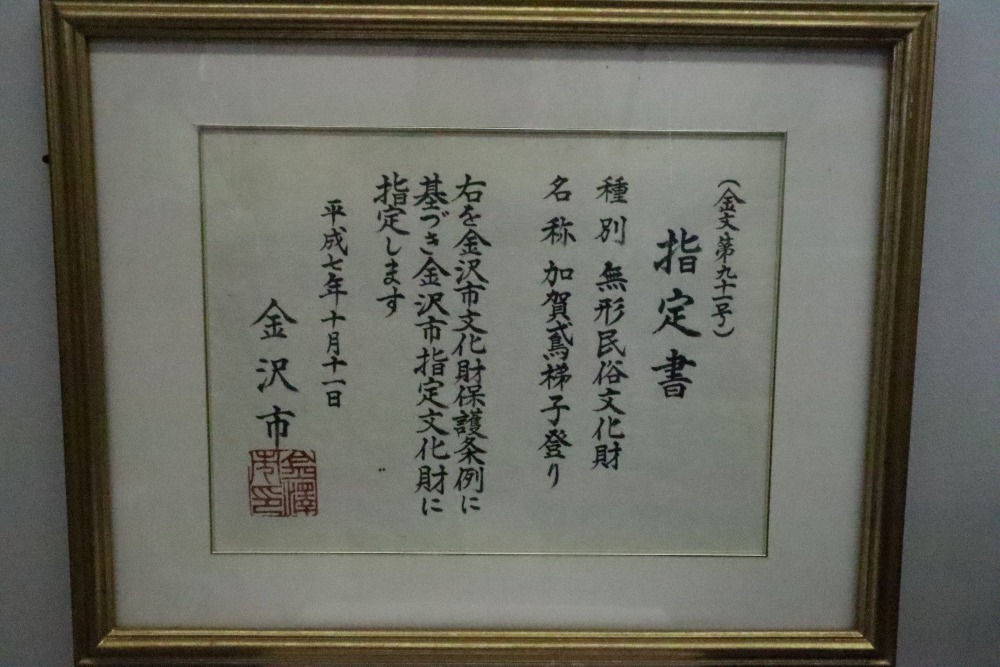 (金文第九十一号)
指定書
種別 無形民俗文化財
名称 加賀鳶梯子登り
右を金沢市文化財保護条例に
基づき金沢市指定文化財に
指定します
平成七年十月十一日
金沢市
金澤市印